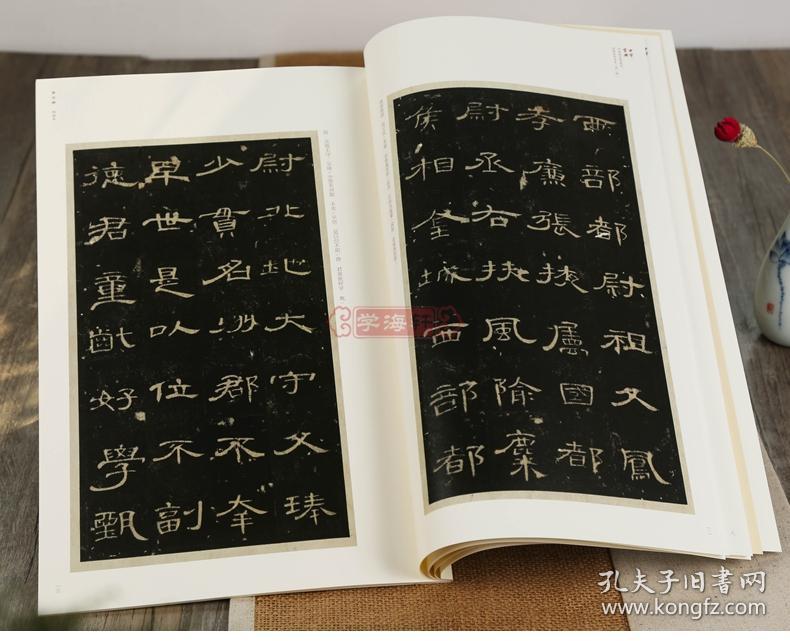 西部都尉祖父鳳
孝廉張掖屬國都
尉丞右扶風隃麋
侯相金城西部都
尉北地大守父琫
少貫名州郡不幸
早世是以位不副
德君童齔好學甄
学海轩
孔夫子旧书网
www.kongfz.com